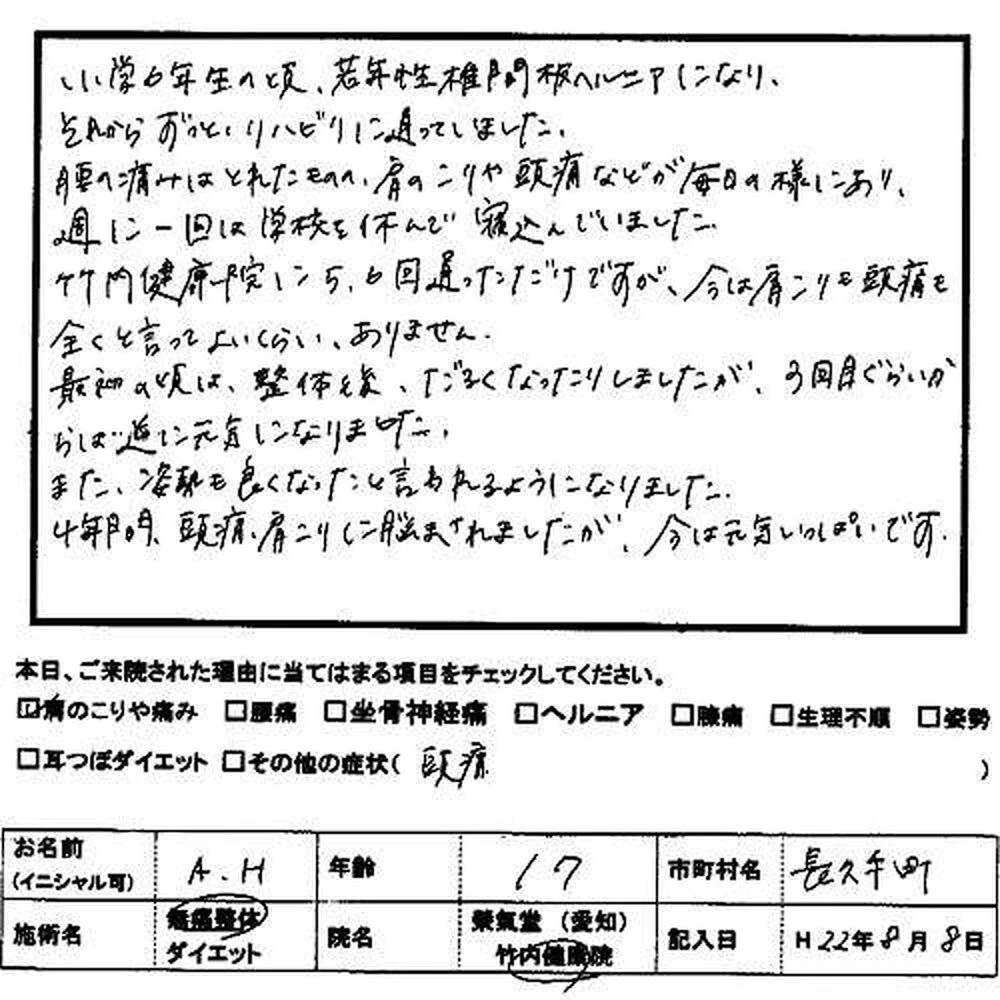 小学6年生の頃、若年性椎間板ヘルニアになり、
それからずっと、リハビリに通ってしました。
腰の痛みはとれたものの、肩のこりや頭痛などが毎日の様にあり、
週に一回は学校を休んで寝込んでいました。
竹内健康院に5、6回通っただけですが、今は肩こりも頭痛も
全くと言ってよいくらい、ありません。
最初の頃は、整体後、だるくなったりしましたが、3回目ぐらいか
らは逆に元気になりました。
また、姿勢も良くなったと言われるようになりました。
4年間、頭痛、肩こりに悩まされましたが、今は元気いっぱいです。
本日、ご来院された理由に当てはまる項目をチェックしてください。
☑肩のこりや痛み □腰痛 □坐骨神経痛 □ヘルニア □膝痛 □生理不順 □姿勢
□耳つぼダイエット □その他の症状( 頭痛 )
お名前(イニシャル可) A.H 年齢 17 市町村名 長久手町
施術名 無痛整体 ダイエット 院名 榮氣堂(愛知) 竹内健康院 記入日 H22年8月8日